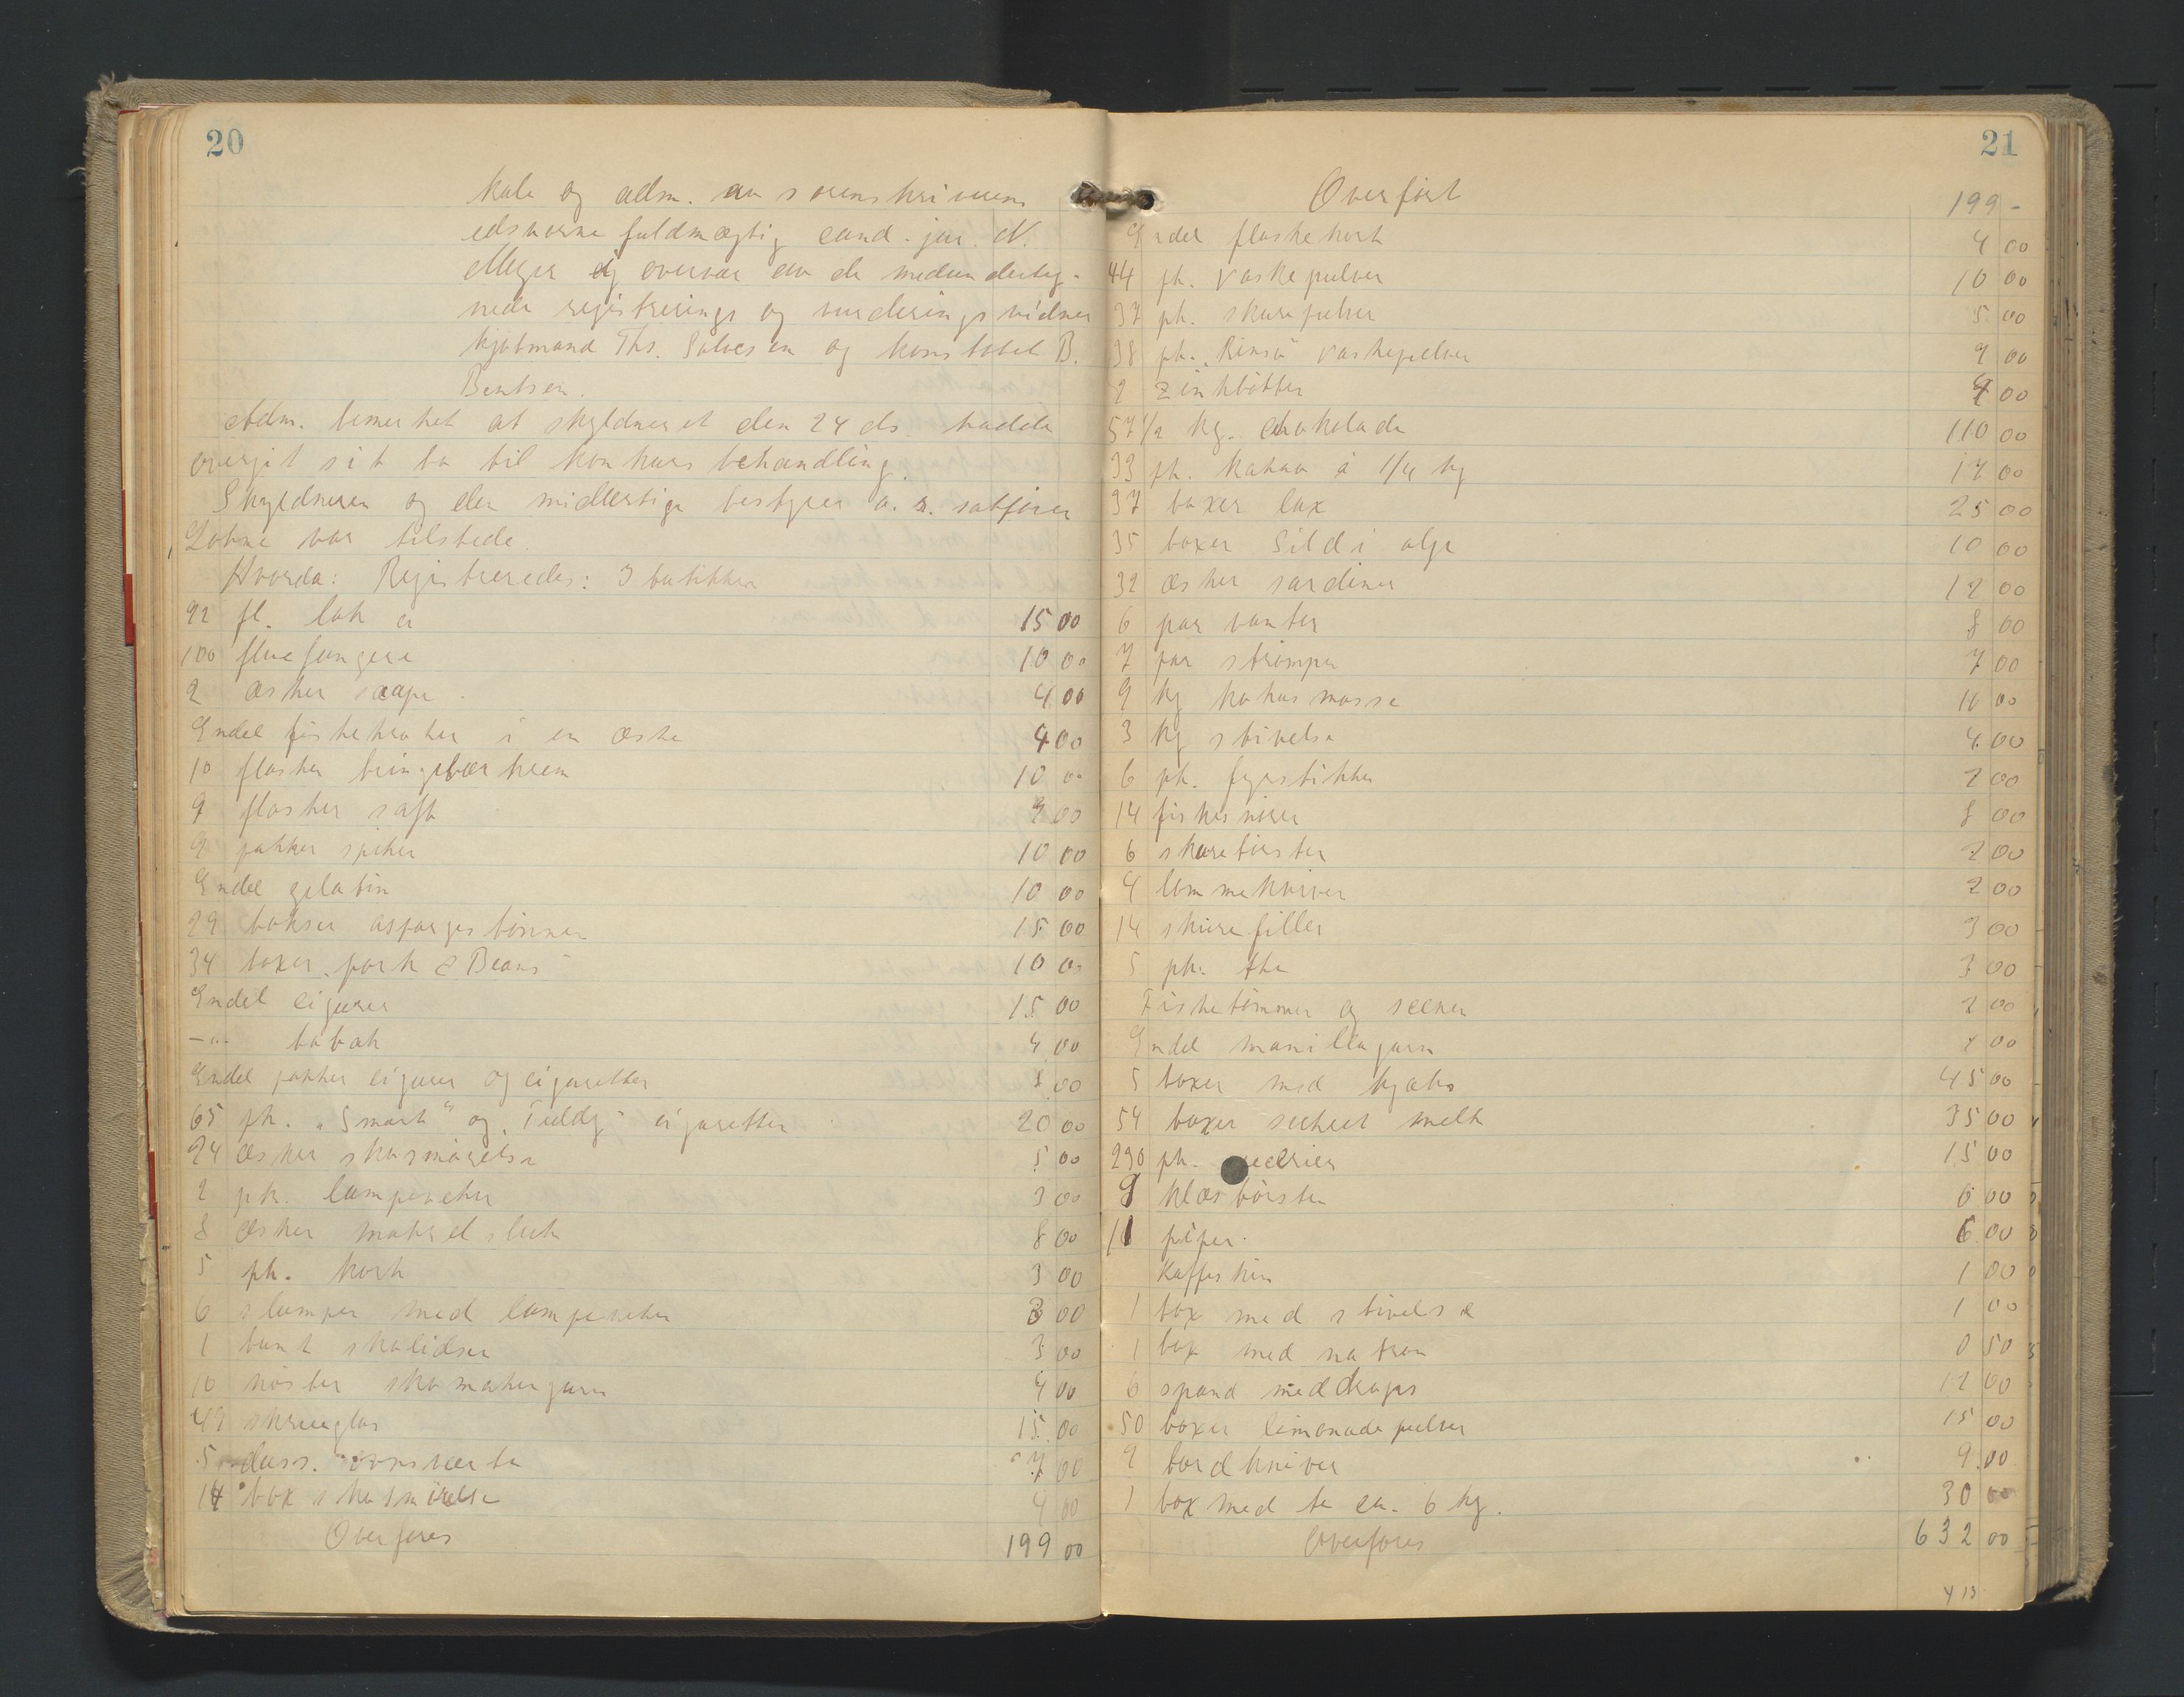 20
kale og adm. av sorenskriverens
edsvorne fuldmægtig cand. jur. N.
Meyer og overvær av de medunderteg-
nede registrerings og vurderingsvidner
kjøbmand Ths. Salvesen og konstabel B.
Bentsen.
Adm. bemerket at skyldneren den 24 ds. hadde
overgit sit bo til konkursbehandling.
Skyldneren og den midlertige bestyrer o. r. sakfører
var tilstede.
Hvorda: Registreredes: I butikken
92 fl. lak a 15 00
100 fluefangere 10 00
2 æsker sæape 4 00
Endel fiskekroker i en æske 4 00
10 flasker bringebærkrem 10 00
9 flasker saft 9 00
9 pakker spiker 10 00
Endel gelatin 10 00
29 bokser aspargesbønner 15 00
34 boxer pork & Beans 10 00
Endel cigarer 15 00
-"- tobak 4 00
Endel pakker cigarer og cigaretter 3 00
65 pk. "Smart" og "Teddy" cigaretter 20 00
24 æsker skosmørelse 5 00
2 pk. lampeveker 3 00
8 æsker makrelsluk 8 00
5 pk. kork 3 00
6 slumper med lampeveker 3 00
1 bunt skolidser 3 00
10 nøster skomakergarn 4 00
49 skrueglas 15 00
5 duss. 7 00
14 box skosmørelse 4 00
Overføres 199 00
21
Overført 199 -
Endel flaskekork 4 00
44 pk. vaskepulver 10 00
37 pk. skurepulver 5 00
38 pk. "Rinso" vaskepulver 9 00
2 Zinkbøtter 4 00
57 1/2 kg. chokolade 110 00
33 pk. kakao á 1/4 kg 17 00
37 boxer lax 25 00
35 boxer Sild i olje 10 00
32 æsker sardiner 12 00
6 par vanter 8 00
7 par strømper 7 00
9 kg kokosmasse 10 00
3 kg stivelse 4 00
6 pk. fyrstikker 2 00
14 fiskesnører 8 00
6 skurebørster 2 00
4 lommekniver 2 00
14 skurefiller 3 00
5 pk. the 3 00
Fisketømmer og seener 2 00
Endel manillagarn 4 00
5 boxer med kjæks 45 00
54 boxer sukret melk 35 00
290 pk. 15 00
9 klæsbørster 6 00
11 piper 6 00
Kaffeskin 1 00
1 box med stivelse 1 00
1 box med natron 0 50
6 spand med drops 12 00
50 boxer limonadepulver 15 00
9 bordkniver 9.00
1 box med te ca. 6 kg. 30 00
Overføres 632 00
413